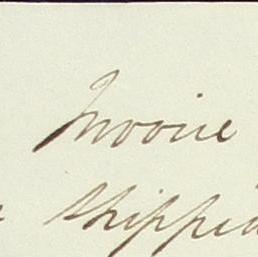 Invoice
shipped